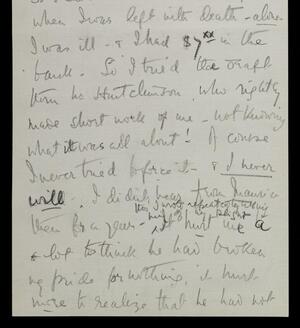 when I was left with death - alone
I was ill - & I had $7 xx in the
bank. So I tried the draft
thru Mr Hutchinson, who rightly
made short work of me - not knowing
what it was all about! Of course
I never tried to force it - & I never
will. I didn't hear from Maurice
then I wrote repeatedly asking
then for a year - it hurt me a
lot to think he had broken
my pride for nothing, it hurt
more to realize that he had not